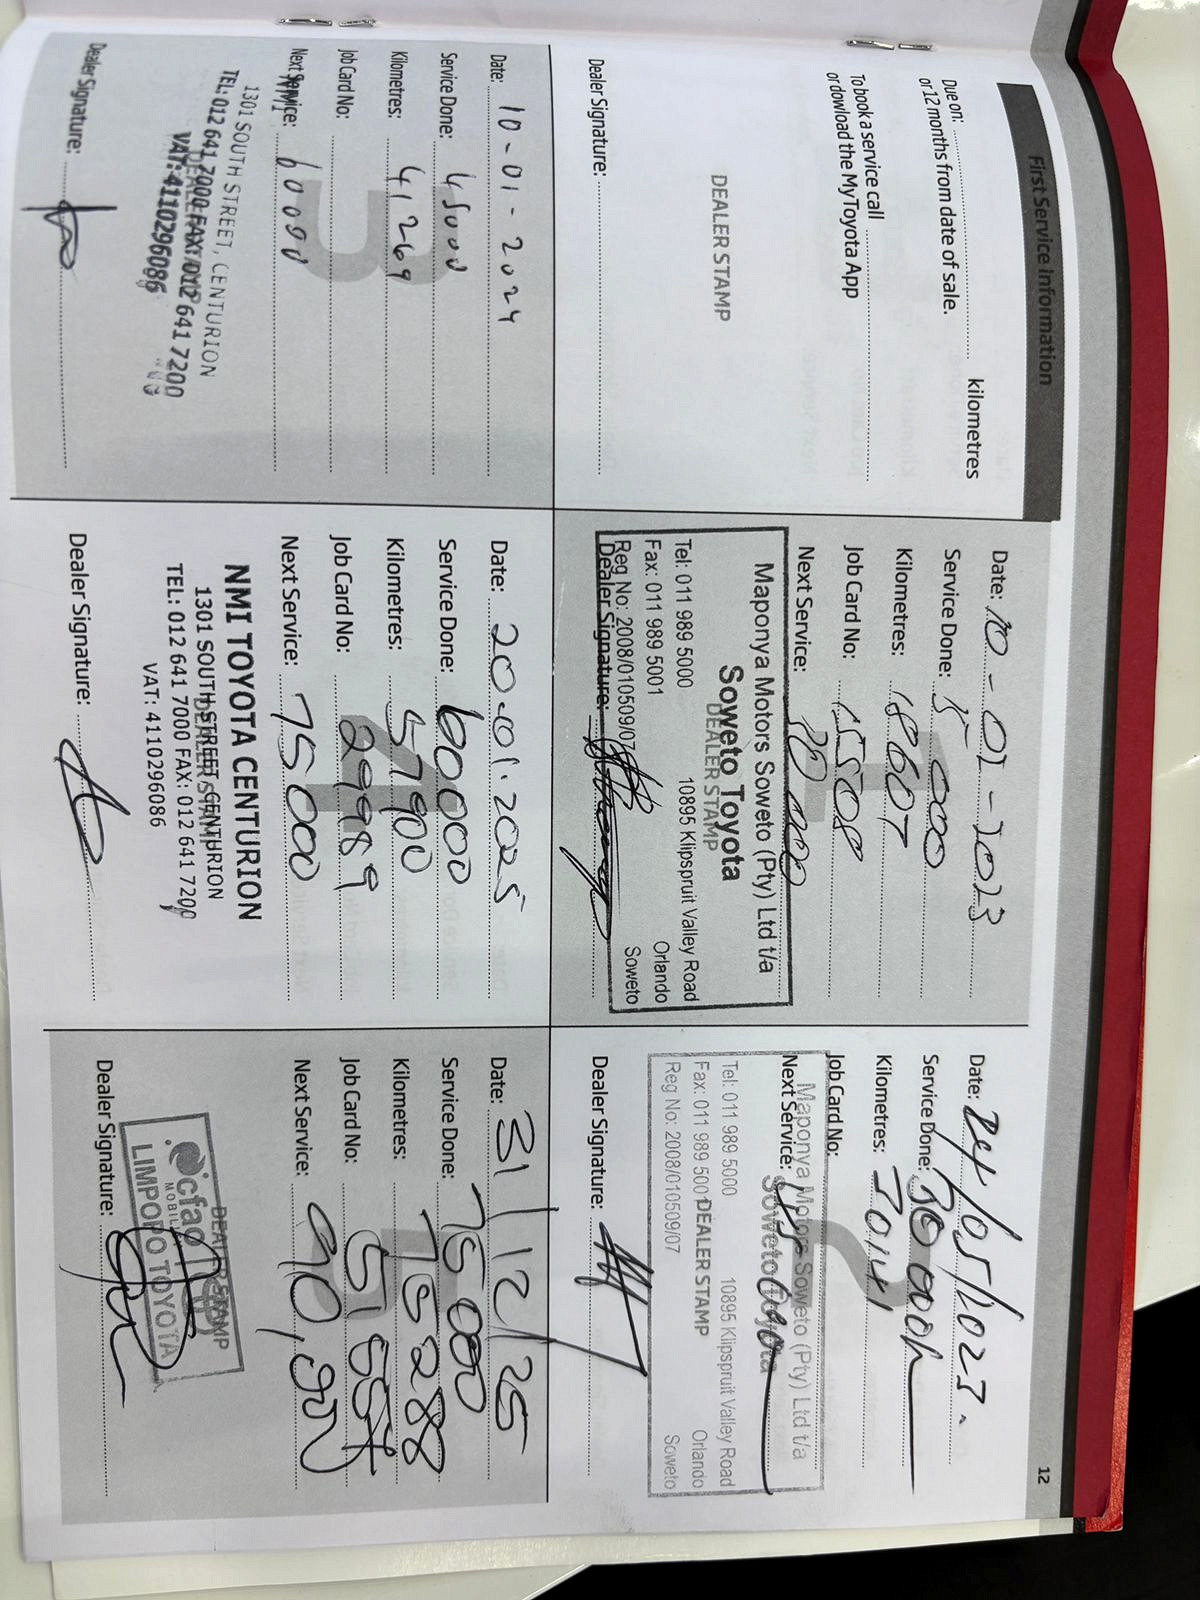 First Service Information
12
Due on: kilometres
or 12 months from date of sale.
To book a service call
or dowload the MyToyota App
DEALER STAMP
Dealer Signature:
Date: 10-01-2023
Service Done: 15 000
Kilometres: 18607
Job Card No: 15508
Next Service: 30 000
Maponya Motors Soweto (Pty) Ltd t/a
Soweto Toyota
DEALER STAMP
Tel: 011 989 5000 10895 Klipspruit Valley Road
Fax: 011 989 5001 Orlando
Reg No: 2008/010509/07 Soweto
Dealer Signature:
Date: 24/05/2023.
Service Done: 30 000
Kilometres: 30141
Job Card No:
Maponya Motors Soweto (Pty) Ltd t/a
Next Service:
Soweto Toyota
Tel: 011 989 5000 10895 Klipspruit Valley Road
Fax: 011 989 5001 DEALER STAMP Orlando
Reg No: 2008/010509/07 Soweto
Dealer Signature:
3
Date: 10-01-2024
Service Done: 45000
Kilometres: 41269
Job Card No:
Next Service: 60000
1301 SOUTH STREET, CENTURION
TEL: 012 641 7000 FAX: 012 641 7200
DEALER STAMP
VAT: 4110296086
Dealer Signature:
4
Date: 20.01.2025
Service Done: 60000
Kilometres: 57900
Job Card No: 299989
Next Service: 75000
NMI TOYOTA CENTURION
1301 SOUTH STREET, CENTURION
DEALER STAMP
TEL: 012 641 7000 FAX: 012 641 7200
VAT: 4110296086
Dealer Signature:
Date: 31/12/25
Service Done: 75000
Kilometres: 75288
Job Card No:
Next Service: 90,000
DEALER STAMP
cfao
MOBILITY
LIMPOPO TOYOTA
Dealer Signature: